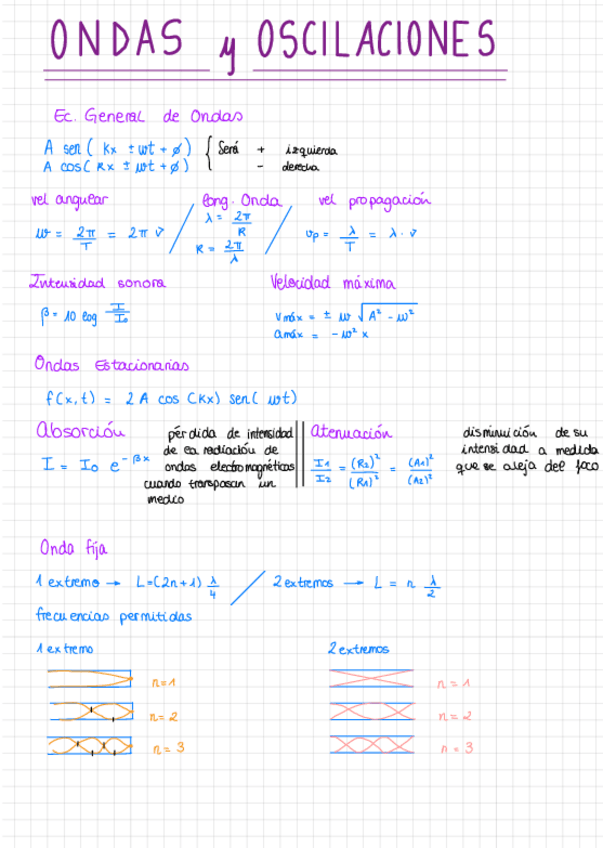 ONDAS y OSCILACIONES
Ec. General de Ondas
A sen ( Kx ± wt + ø) { Será + izquierda
A cos ( Kx ± wt + ø) - derecha
vel angular / long. Onda / vel propagación
w = 2π/T = 2π ν
λ = 2π/K
K = 2π/λ
vp = λ/T = λ · ν
Intensidad sonora
β = 10 log I/I₀
Velocidad máxima
Vmáx = ± w √(A² - w²)
amáx = - w² x
Ondas Estacionarias
f(x,t) = 2 A cos (Kx) sen( wt)
absorción
I = I₀ e^-βx
pérdida de intensidad
de la radiación de
ondas electromagnéticas
cuando traspasan un
medio
atenuación
I₁/I₂ = (R₂)²/(R₁)² = (A₁)²/(A₂)²
disminuición de su
intensidad a medida
que se aleja del foco
Onda fija
1 extremo → L=(2n+1) λ/4 / 2 extremos → L = n λ/2
frecuencias permitidas
1 extremo
n=1
n= 2
n= 3
2 extremos
n = 1
n = 2
n = 3